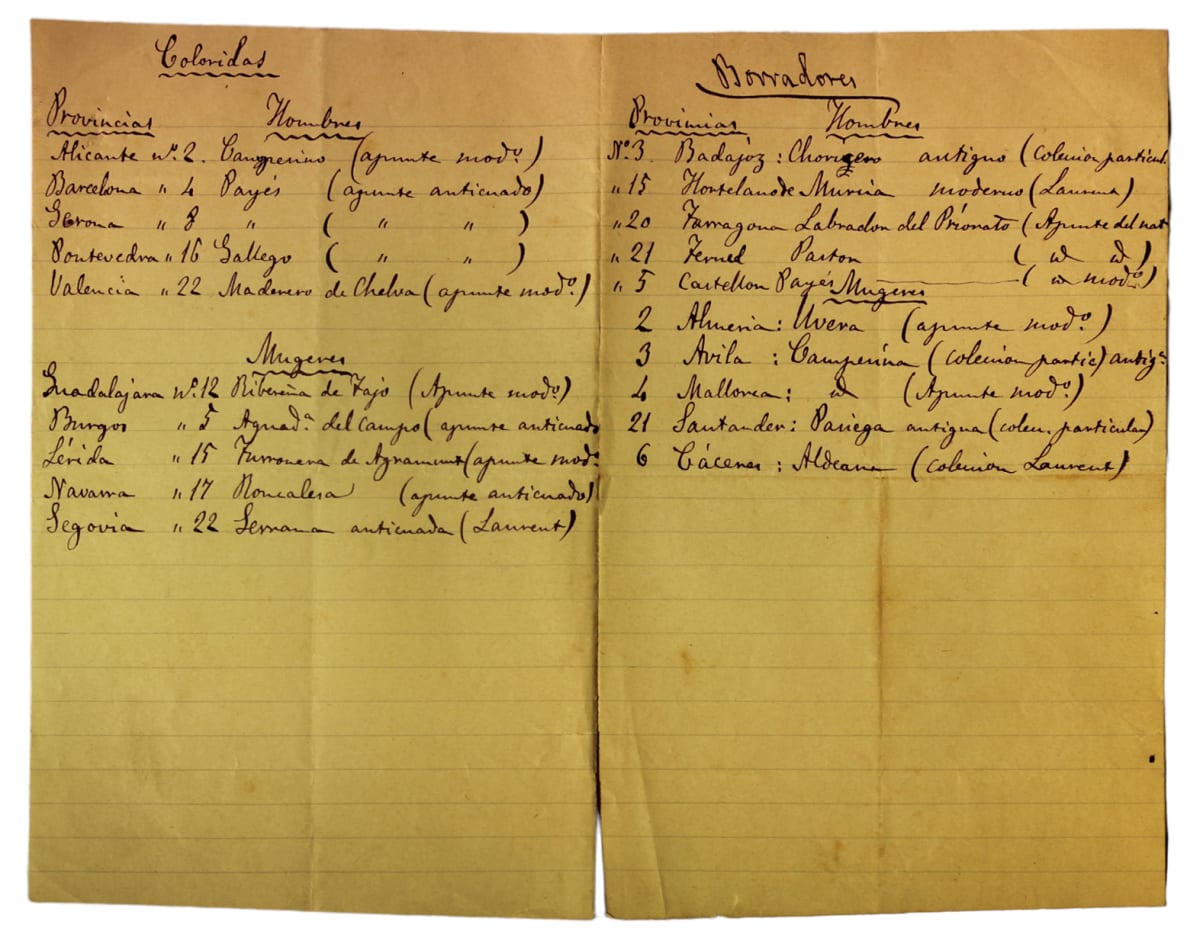 Coloridas
Provincias Hombres
Alicante nº. 2. Campesino (apunte modº.)
Barcelona " 4 Payés (apunte anticuado)
Gerona " 8 " ( " " )
Pontevedra " 16 Gallego ( " " )
Valencia " 22 Maderero de Chelva (apunte modº.)
Mugeres
Guadalajara nº. 12 Ribereña de Tajo (Apunte modº.)
Burgos " 5 Aguadª. del campo (apunte anticuado
Lérida " 15 Turronera de Agramunt (apunte modº.
Navarra " 17 Roncalesa (apunte anticuado)
Segovia " 22 Serrana anticuada (Laurent)
Borradores
Provincias Hombres
Nº. 3. Badajóz: Choricero antiguo (colecion particul.
" 15 Hortelano de Múrcia moderno (Laurent)
" 20 Tarragona Labrador del Priorato (Apunte del nat
" 21 Teruel Pastor ( id id )
" 5 Castellon Payés ( id modº.)
Mugeres
2 Almeria: Uvera (apunte modº.)
3 Avila: Campesina (colecion partic) antigª.
4 Mallorca: id (Apunte modº.)
21 Santander: Pasiega antigua (colec. particular)
6 Cáceres: Aldeana (colecion Laurent)